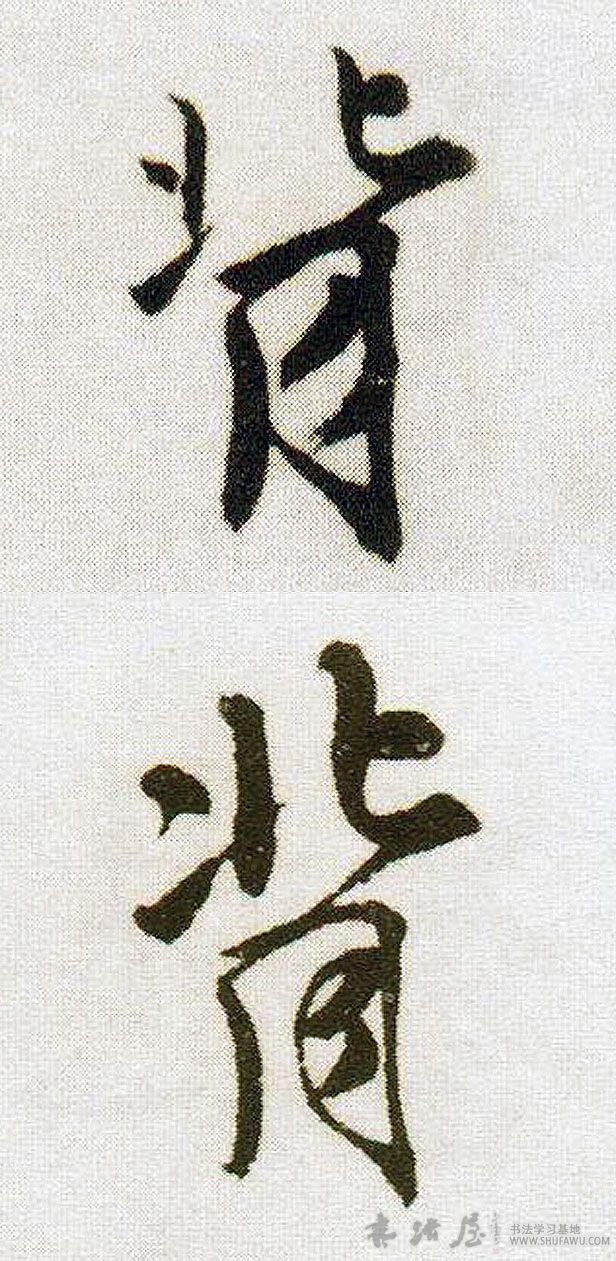 背
背
书法屋 书法学习基地
WWW.SHUFAWU.COM